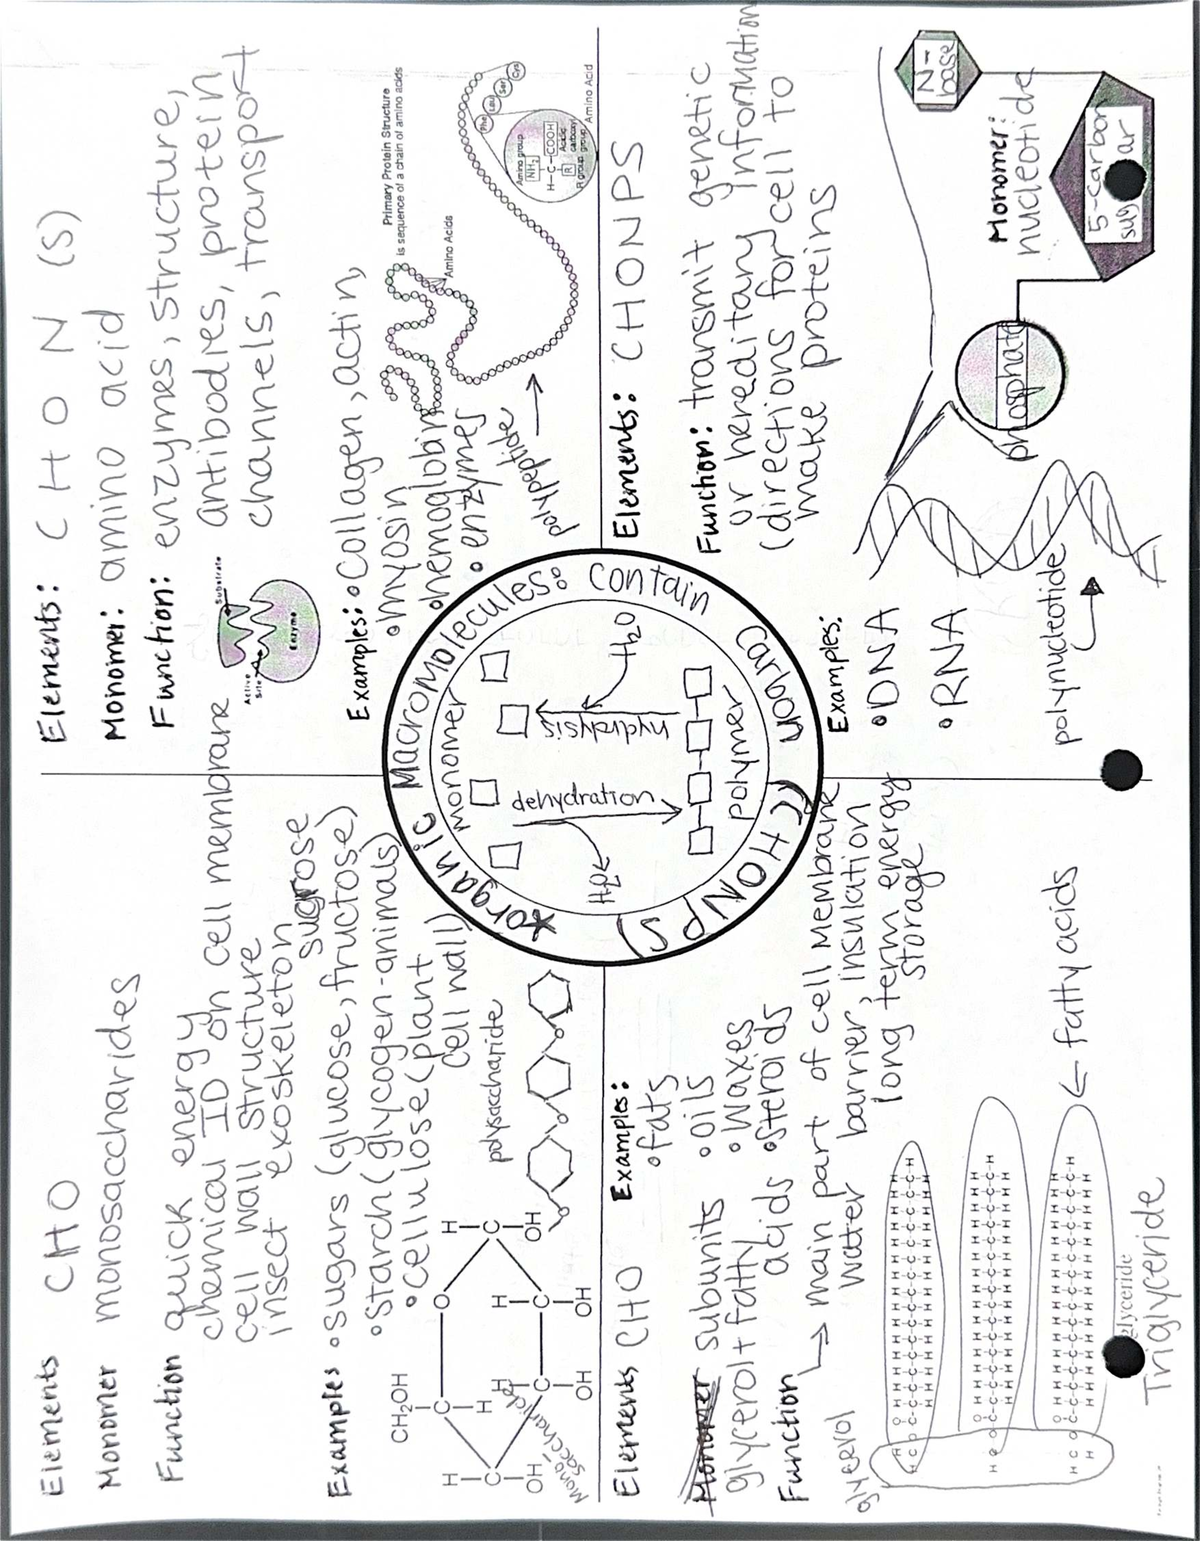 Elements CHO
Monomer monosaccharides
Function quick energy
chemical ID on cell membrane
cell wall structure
insect exoskeleton
sucrose
Examples •sugars (glucose, fructose)
•Starch (glycogen-animals)
•cellulose (plant
cell wall)
polysaccharide
CH₂OH
H C O H
C H H C
OH C C OH
OH OH
Mono-
saccharide
Elements: C H O N (S)
Monomer: amino acid
Function: enzymes, structure,
antibodies, protein
channels, transport
Substrate
Active
Site
Enzyme
Examples: •Collagen, actin,
•myosin
•hemoglobin
•enzymes
polypeptide
Primary Protein Structure
is sequence of a chain of amino acids
Amino Acids
Phe Leu Ser Cys
Amino group
NH₂
H-C-COOH
Acidic
carboxyl
group
R
R group
Amino Acid
*organic Macromolecules: contain
carbon (CHONPS)
monomer
dehydration
H₂O
hydrolysis
H₂O
polymer
Elements CHO
Examples:
•fats
•oils
•waxes
•steroids
Monomer subunits
glycerol+fatty
acids
Function → main part of cell membrane
water barrier, insulation
long term energy
storage
glycerol
← fatty acids
glyceride
Triglyceride
Elements: CHONPS
Function: transmit genetic
or hereditary information
(directions for cell to
make proteins
Examples:
•DNA
•RNA
polynucleotide
Monomer:
nucleotide
phosphate
5-carbon
sugar
N-
base